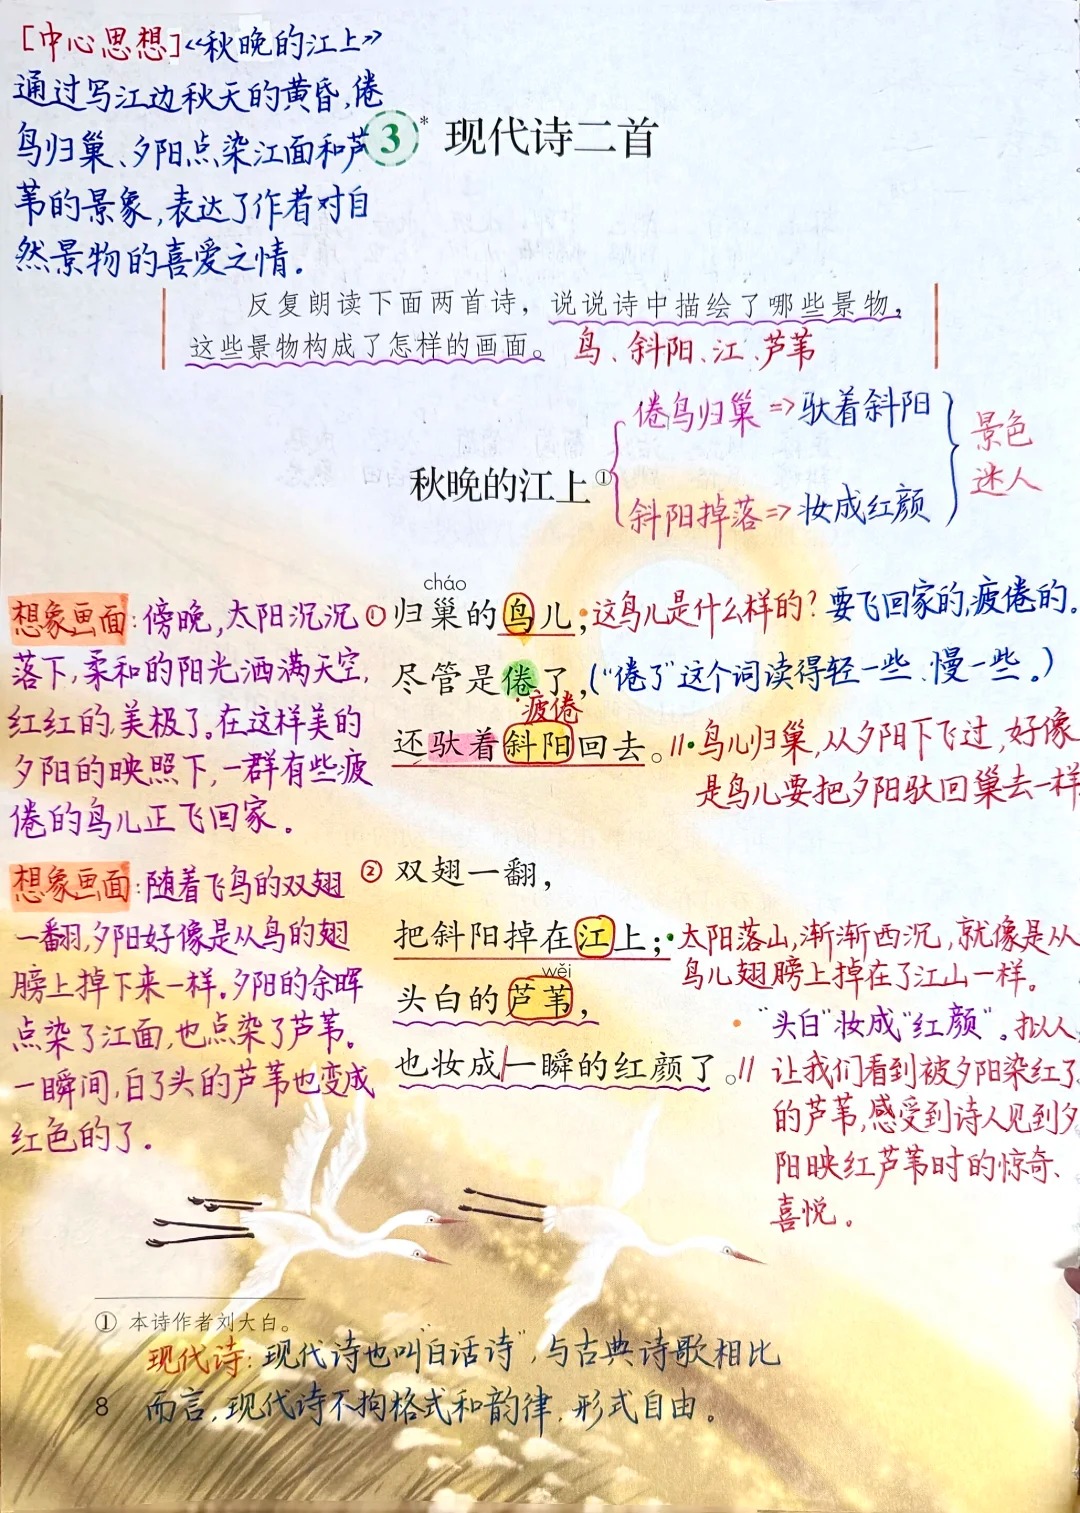 [中心思想]《秋晚的江上》
通过写江边秋天的黄昏,倦
鸟归巢、夕阳点染江面和芦
苇的景象,表达了作者对自
然景物的喜爱之情.
3* 现代诗二首
反复朗读下面两首诗，说说诗中描绘了哪些景物，
这些景物构成了怎样的画面。
鸟、斜阳、江、芦苇
秋晚的江上①
倦鸟归巢=>驮着斜阳
斜阳掉落=>妆成红颜
景色
迷人
cháo
①归巢的鸟儿；
·这鸟儿是什么样的?要飞回家的,疲倦的.
尽管是倦了，
("倦了"这个词读得轻一些、慢一些。)
疲倦
还驮着斜阳回去。//
·鸟儿归巢,从夕阳下飞过,好像
是鸟儿要把夕阳驮回巢去一样
想象画面:傍晚,太阳沉沉
落下,柔和的阳光洒满天空,
红红的,美极了.在这样美的
夕阳的映照下,一群有些疲
倦的鸟儿正飞回家.
②双翅一翻，
把斜阳掉在江上；
·太阳落山,渐渐西沉,就像是从
鸟儿翅膀上掉在了江山一样.
wěi
头白的芦苇，
也妆成|一瞬的红颜了。//
·"头白"妆成"红颜".拟人,
让我们看到被夕阳染红了
的芦苇,感受到诗人见到夕
阳映红芦苇时的惊奇、
喜悦。
想象画面:随着飞鸟的双翅
一翻,夕阳好像是从鸟的翅
膀上掉下来一样.夕阳的余晖
点染了江面,也点染了芦苇.
一瞬间,白了头的芦苇也变成
红色的了.
① 本诗作者刘大白。
现代诗:现代诗也叫"白话诗",与古典诗歌相比
而言,现代诗不拘格式和韵律,形式自由。
8